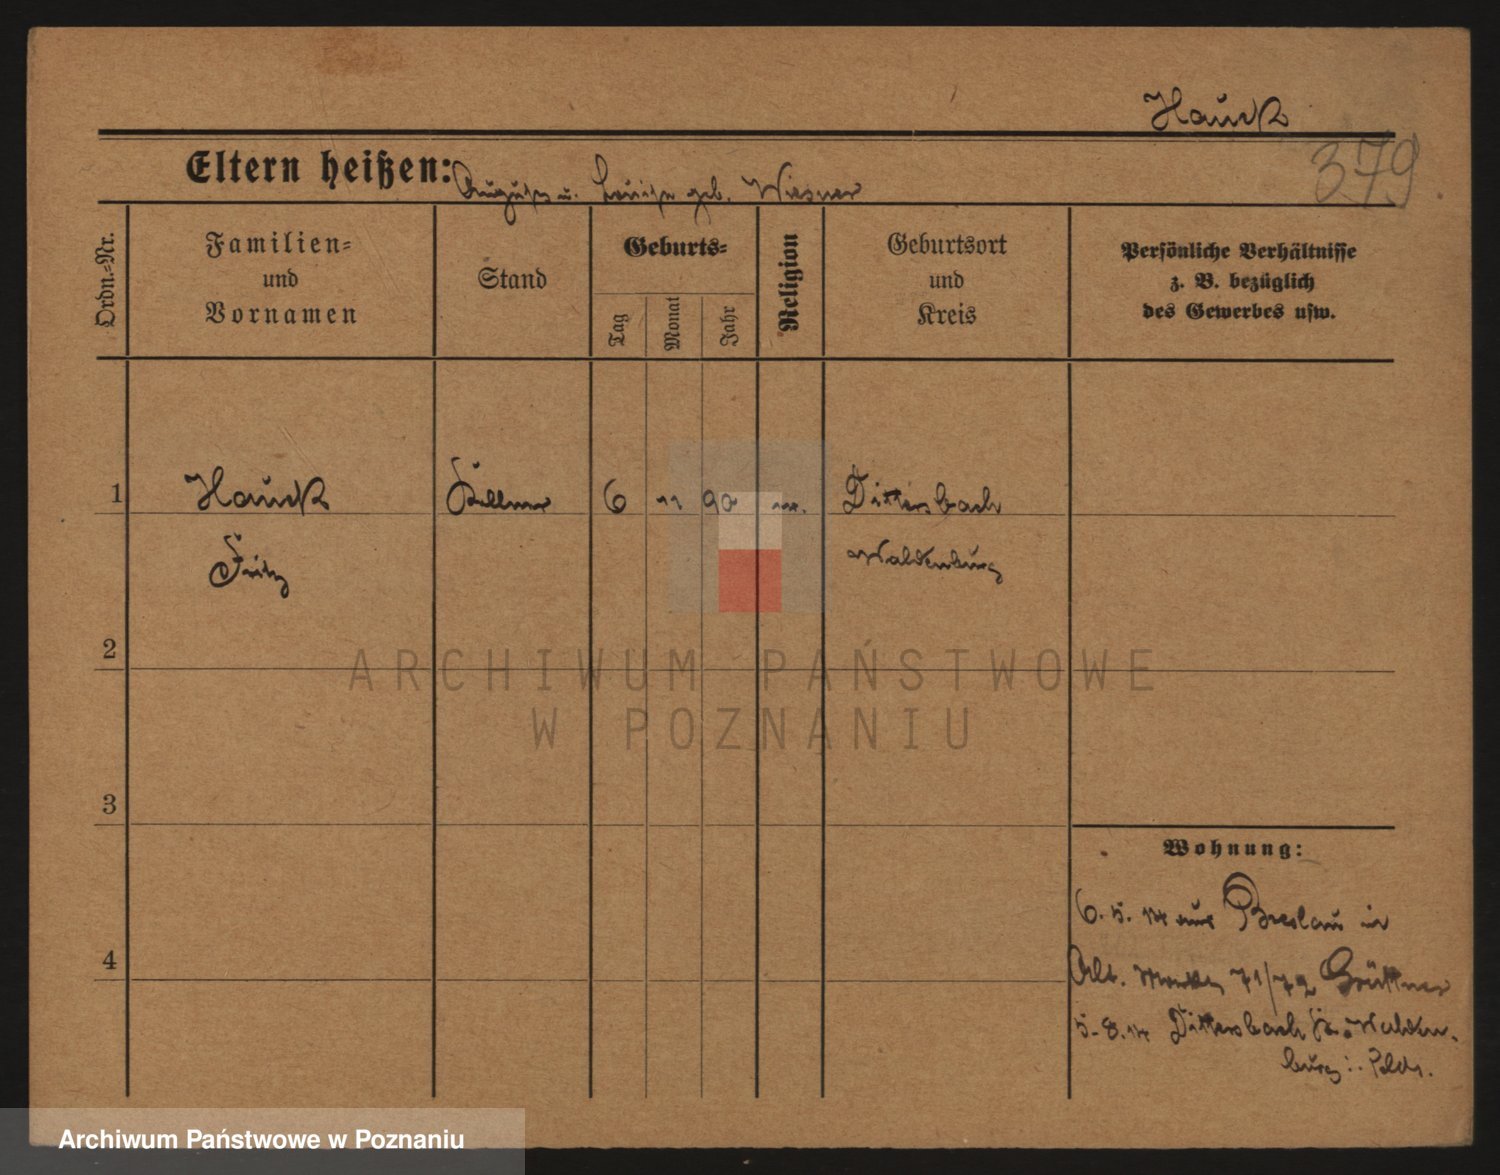 Hauck
379
Eltern heißen: August u. Louise geb. Wiesner
Ordn.-Nr.
Familien- und Vornamen
Stand
Geburts-
Tag
Monat
Jahr
Religion
Geburtsort und Kreis
Persönliche Verhältnisse
z. B. bezüglich
des Gewerbes usw.
1 Hauck Kellner 6 11 90 Dittersbach
Fritz Waldenburg
2
3
4
ARCHIWUM PAŃSTWOWE
W POZNANIU
Wohnung:
6.5.14 aus Breslau in
Alt. Markt 71/72 Grüttner
5.8.14 Dittersbach Kr. Walden-
burg i. Schls.
Archiwum Państwowe w Poznaniu